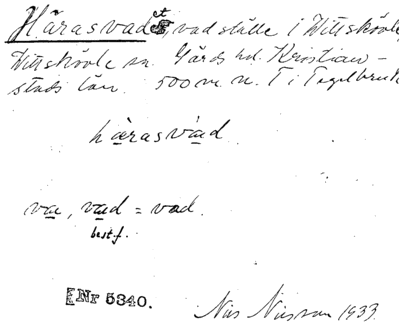 Härasvadet, vadställe i Wittskövle,
Wittskövle sn. Gärds hd. Kristian-
stads län. 500 m. n. T i Tegelbruk
hàrasvàad
va, vad = vad.
best.f.
Nr 5340.
Nils Nilsson 1933.